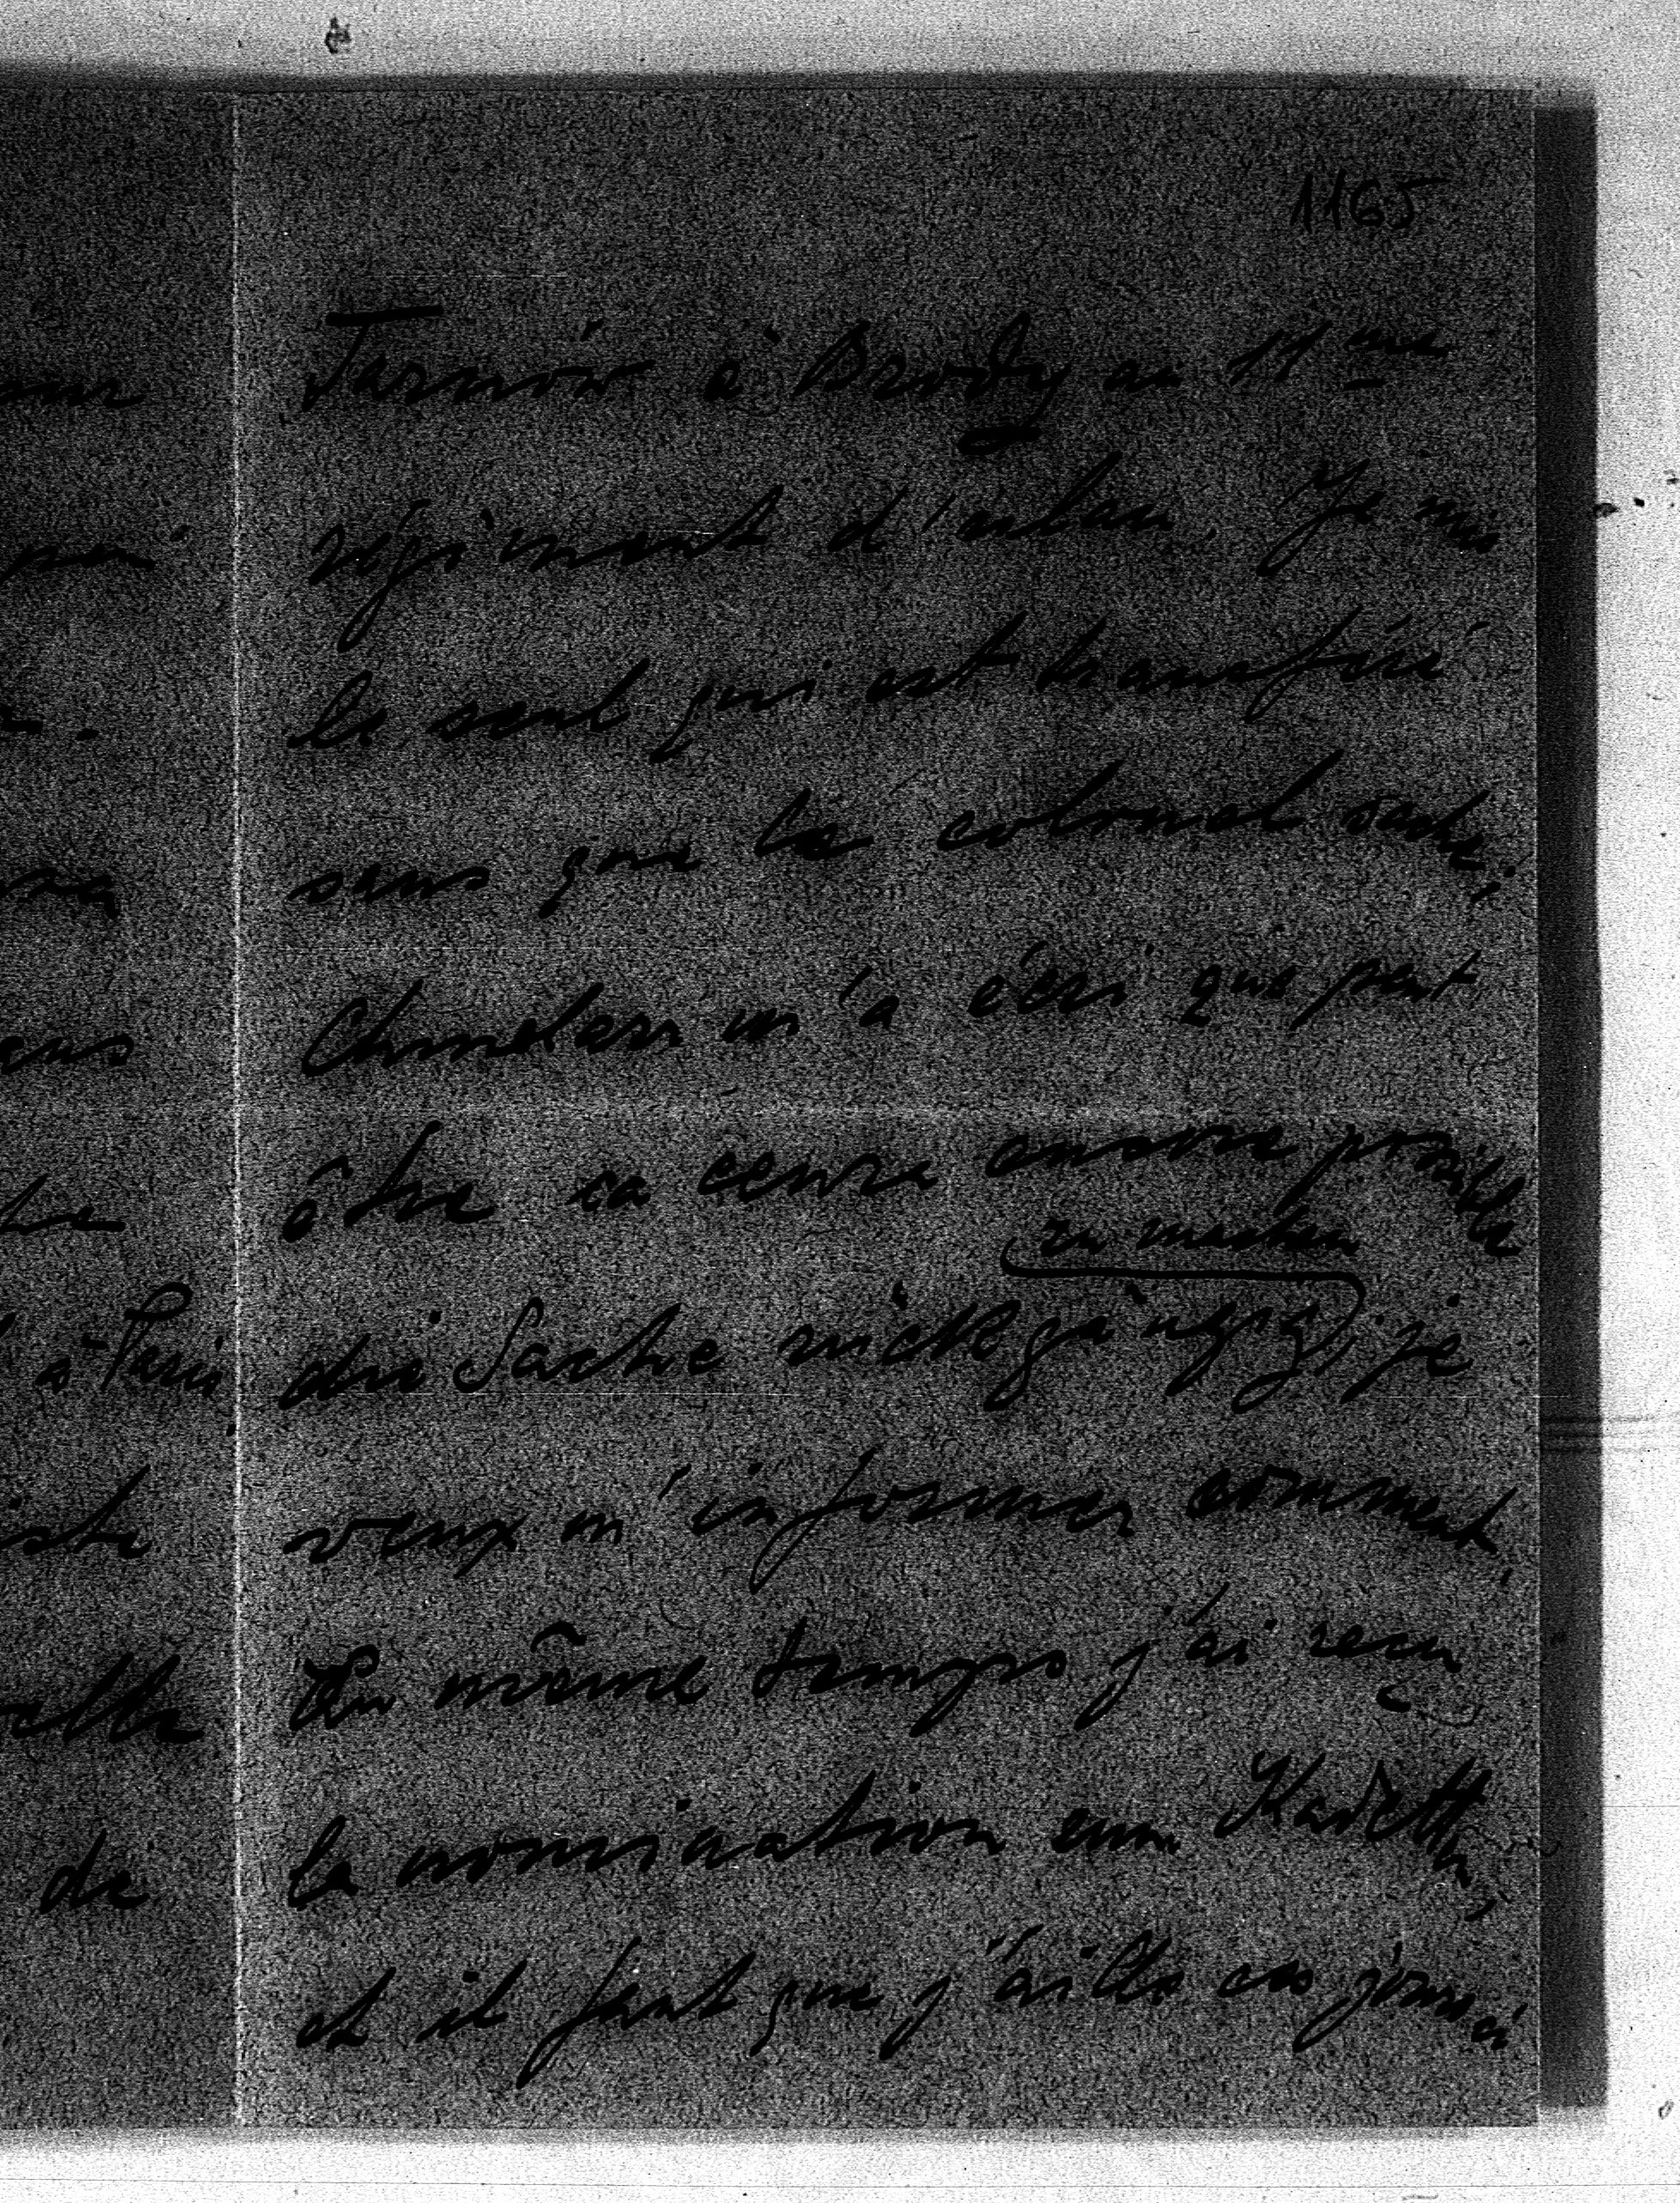 1165
Tarnów à Brody au 11 me
régiment d'ulan. Je suis
le seul qui est transféré
sans que le colonel sache;
m'a écri que peut
être ca serra ancore possible
zu machen
die Sache rückgängig; je
veux m'informer comment,
En même temps j'ai reçu
la nomination zum Kadetten,
et il faut que j'aille ces jours ci
à Paris,
de